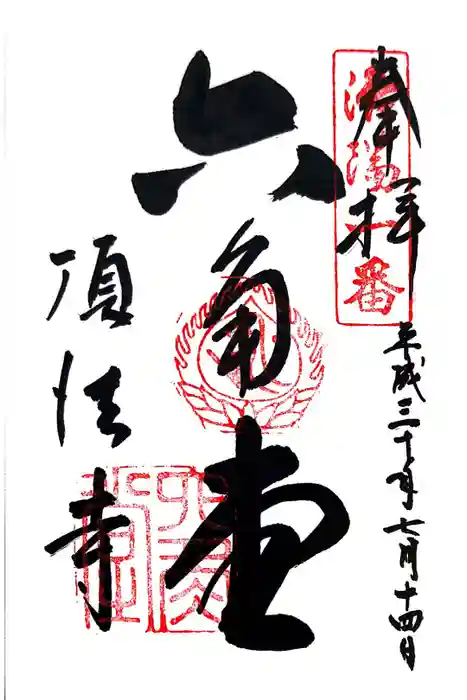 奉拝
洛陽一番
平成三十年七月十四日
六角堂
頂法寺